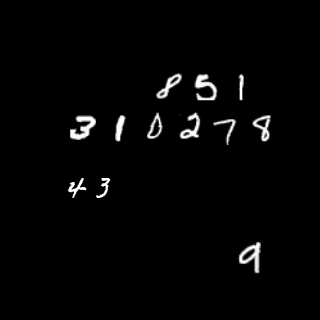 851
310278
43
9